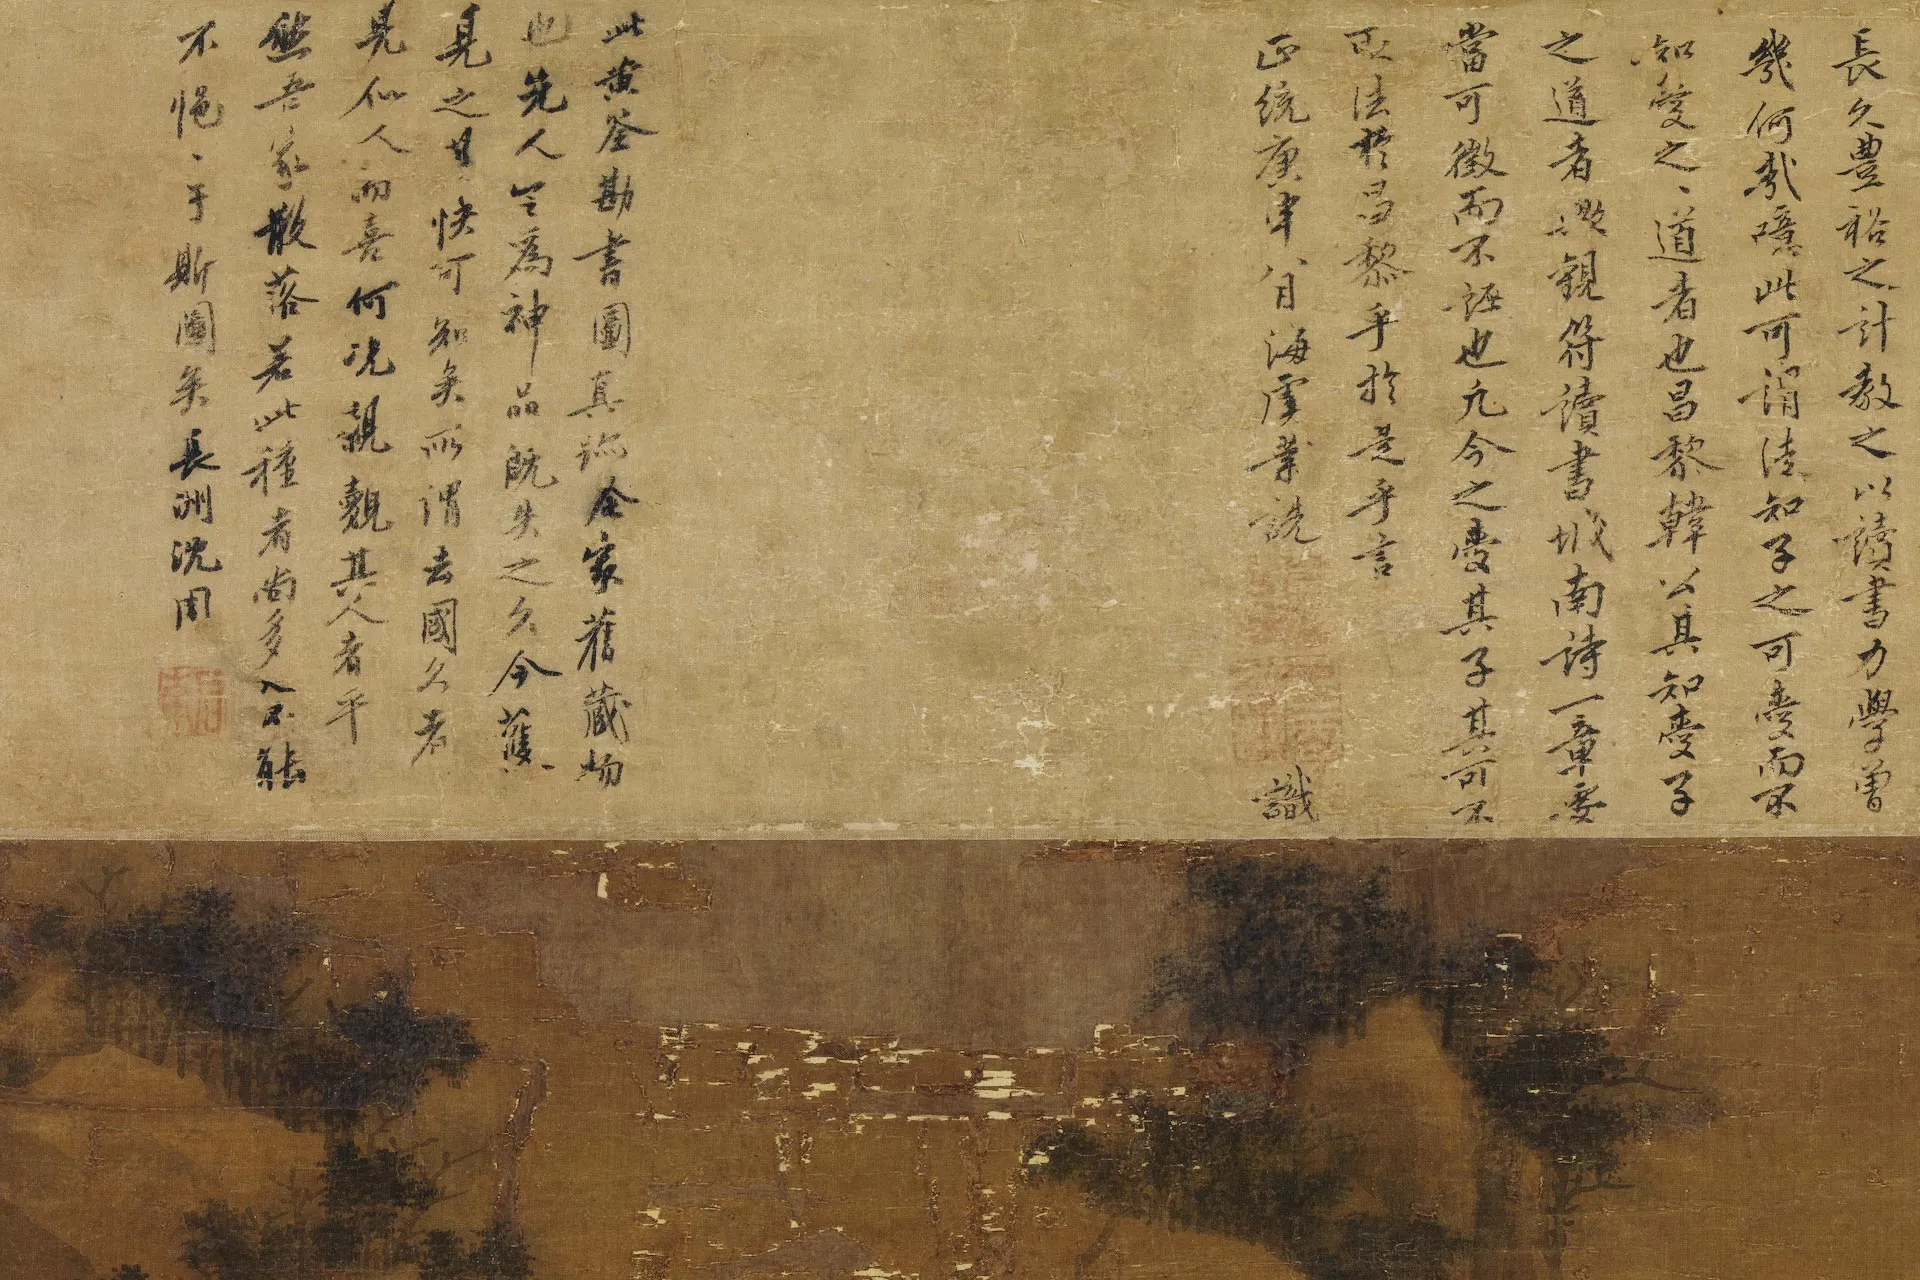 長久豊裕之計教之以讀書力學曾
幾何哉噫此可謂徒知子之可愛而不
知愛之之道者也昌黎韓公真知愛子
之道者歟觀符讀書城南詩一章要
當可徵而不誣也凡今之愛其子其可不
取法於昌黎乎於是乎言
正統庚申八月海虞業說 識
此黄筌勘書圖真跡全家舊藏物
也先人定為神品既失之久今舊
見之其快可知矣所謂去國久者
見似人而喜何况親覩其人者乎
然吾家散落若此種者尚多入不能
不悒悒于斯圖矣長洲沈周